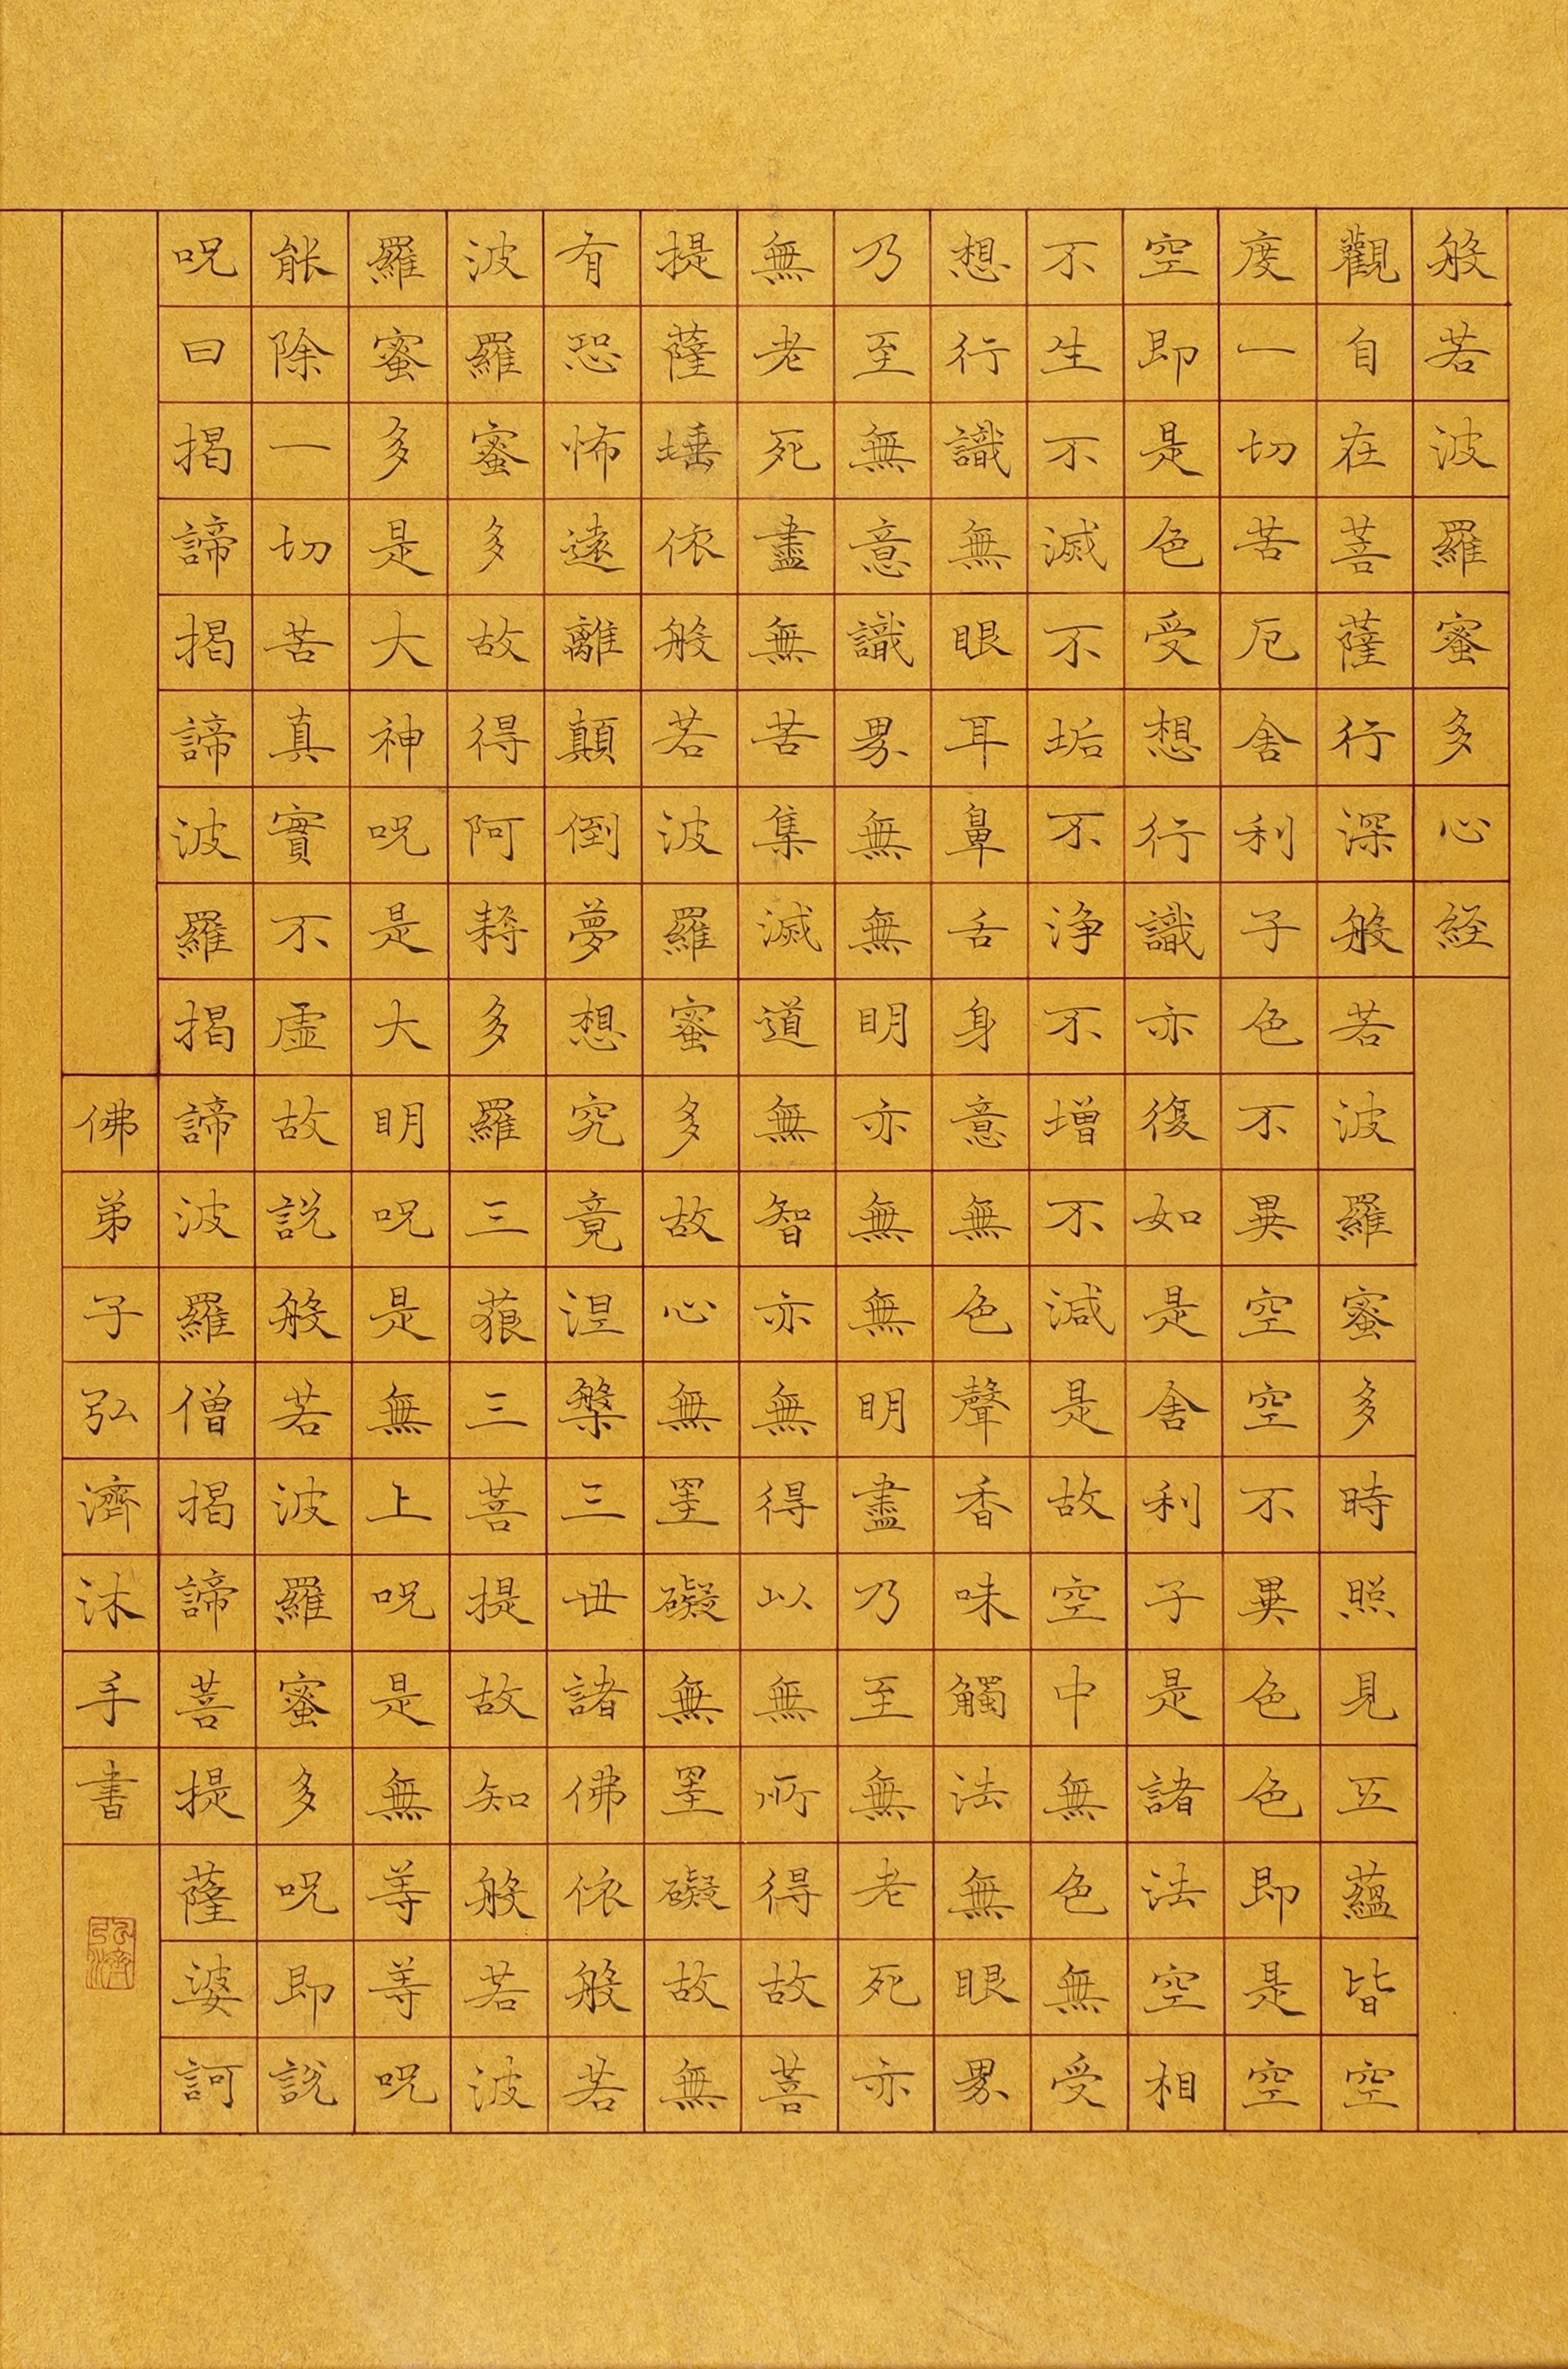 般若波羅蜜多心経
觀自在菩薩行深般若波羅蜜多時照見五蘊皆空
度一切苦厄舍利子色不異空空不異色色即是空
空即是色受想行識亦復如是舍利子是諸法空相
不生不滅不垢不浄不增不減是故空中無色無受
想行識無眼耳鼻舌身意無色聲香味觸法無眼界
乃至無意識界無無明亦無無明盡乃至無老死亦
無老死盡無苦集滅道無智亦無得以無所得故菩
提薩埵依般若波羅蜜多故心無罣礙無罣礙故無
有恐怖遠離顛倒夢想究竟涅槃三世諸佛依般若
波羅蜜多故得阿耨多羅三藐三菩提故知般若波
羅蜜多是大神呪是大明呪是無上呪是無等等呪
能除一切苦真實不虛故說般若波羅蜜多呪即說
呪曰揭諦揭諦波羅揭諦波羅僧揭諦菩提薩婆訶
佛弟子弘濟沐手書
弘濟